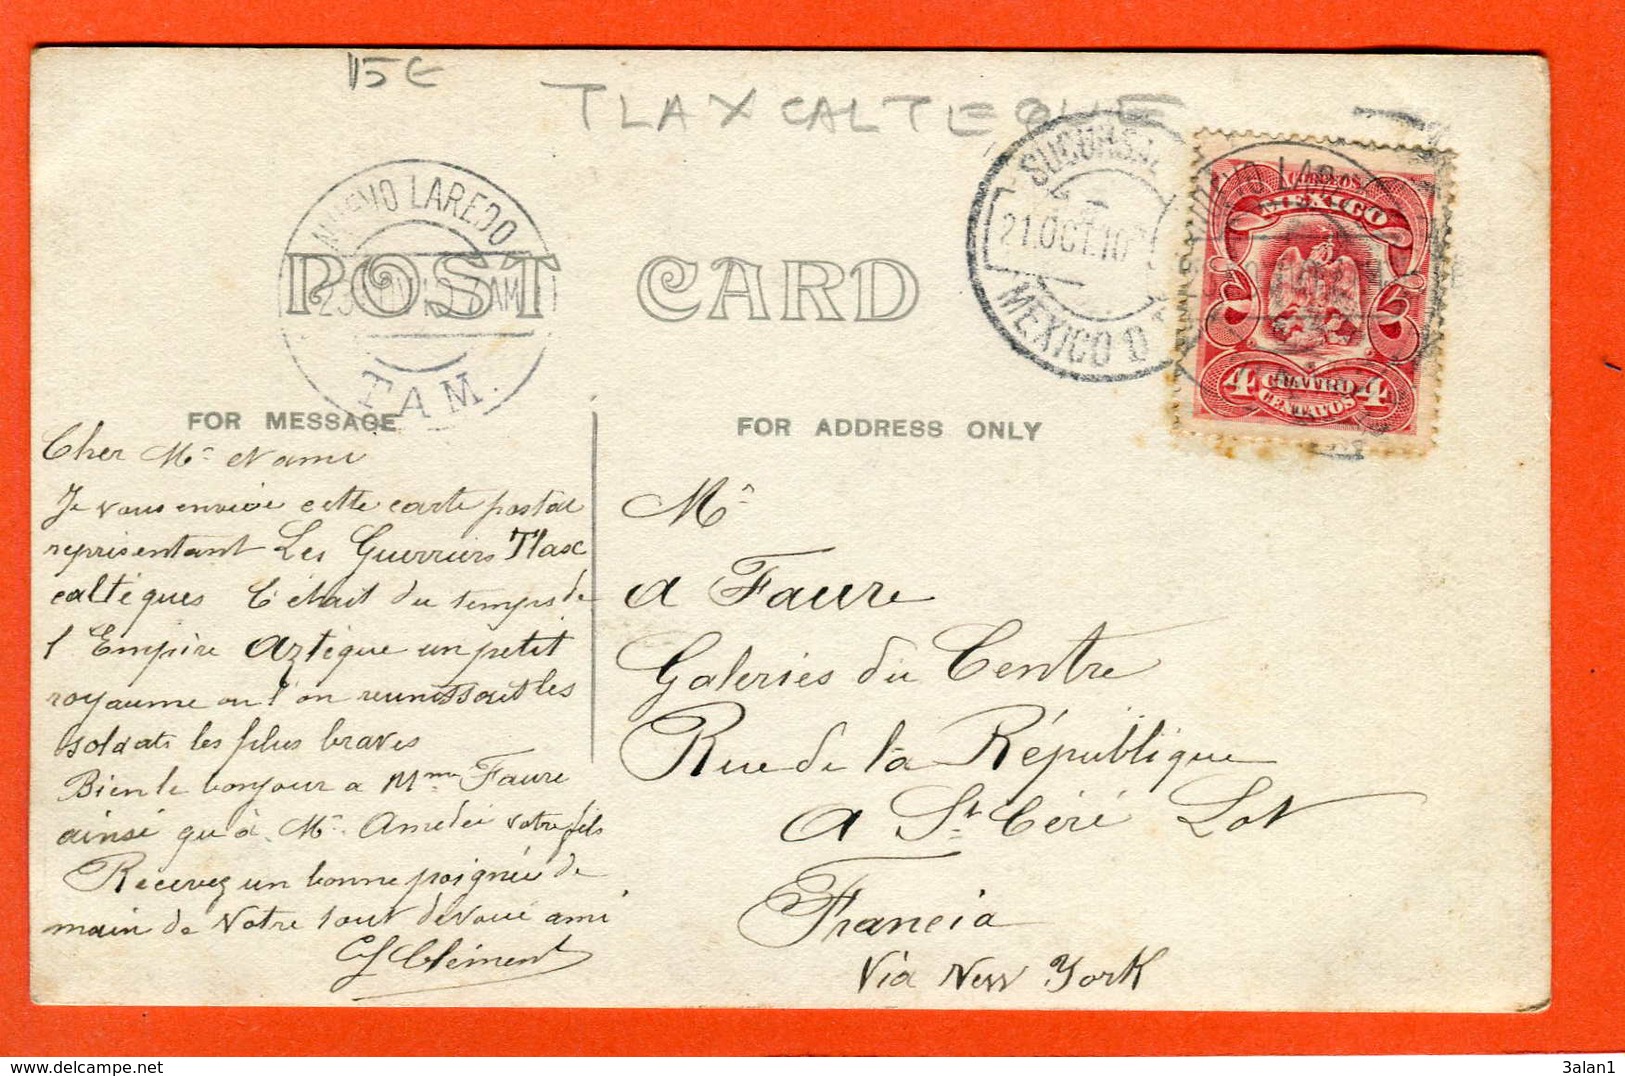 15€
TLAXCALTEQUE
NUEVO LAREDO
TAM.
SUCURSAL
21.OCT.10
MEXICO D
NUEVO LAR
CORREOS
MEXICO
4 CUATRO 4
CENTAVOS
POST CARD
FOR MESSAGE
FOR ADDRESS ONLY
Cher Mr et ami
Je vous envoie cette carte postale
représentant Les Guerriers Tlax
caltèques C'était du temps de
l'Empire Aztèque un petit
royaume ou l'on reunissait les
soldats les plus braves
Bien le bonjour a Mme Faure
ainsi qu'à Mr. Amedée votre fils
Recevez un bonne poignée de
main de Votre tout devoué ami
Clément
Mr
A Faure
Galeries du Centre
Rue de la République
A St Céré Lot
Francia
Via New York
3alan1